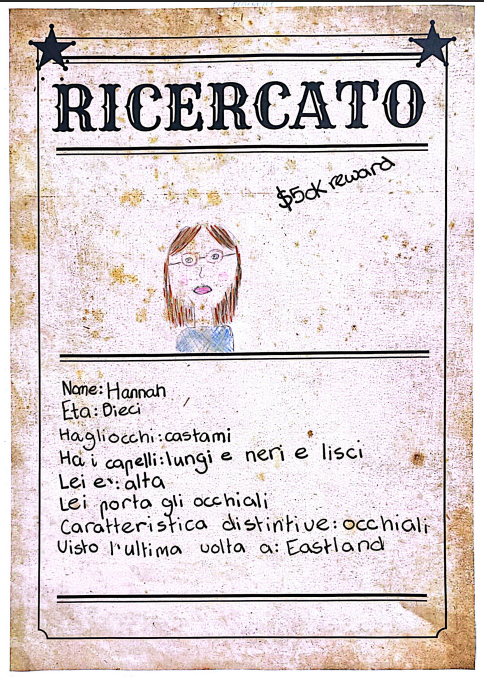 RICERCATO
$50K reward
Nome: Hannah
Eta: Dieci
Ha gli occhi: castami
Ha i capelli: lungi e neri e lisci
Lei e': alta
Lei porta gli occhiali
Caratteristica distintive: occhiali
Visto l'ultima volta a: Eastland